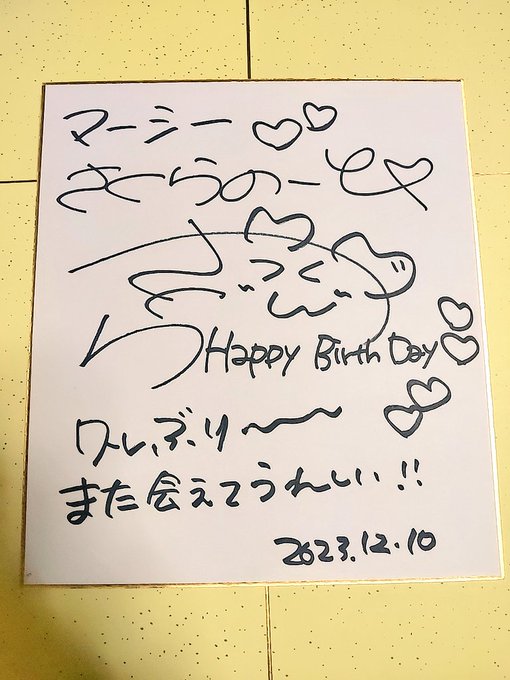 マーシー♡♡
さくらのーと♡
Happy Birth Day♡♡
久しぶり〜
また会えてうれしい!!
2023.12.10